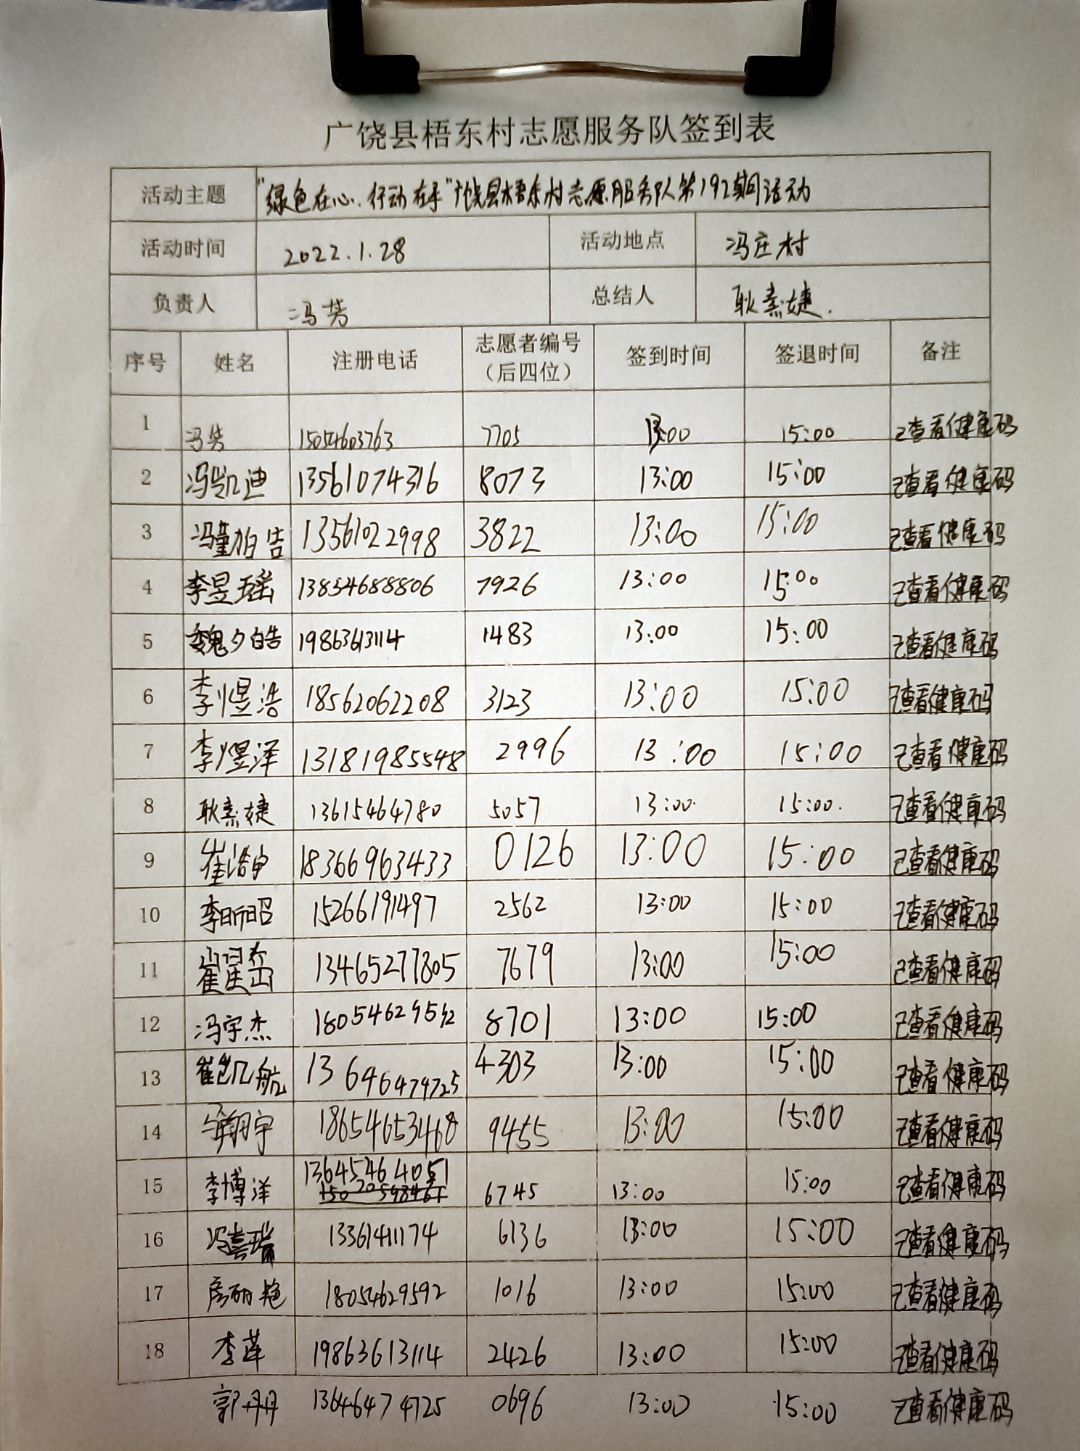 广饶县梧东村志愿服务队签到表
活动主题 "绿色在心、行动在手"广饶县梧东村志愿服务队第192期活动
活动时间 2022.1.28 活动地点 冯庄村
负责人 冯芳 总结人 耿熹婕.
序号 姓名 注册电话 志愿者编号（后四位） 签到时间 签退时间 备注
1 冯芳 15054603763 7705 13:00 15:00 已查看健康码
2 冯凯迪 13561074316 8073 13:00 15:00 已查看健康码
3 13561022998 3822 13:00 15:00 已查看健康码
4 李昱瑶 13854688806 7926 13:00 15:00 已查看健康码
5 魏夕皓 19863613114 1483 13:00 15:00 已查看健康码
6 李煜浩 18562062208 3123 13:00 15:00 已查看健康码
7 李煜泽 13181985548 2996 13:00 15:00 已查看健康码
8 耿熹婕 13615464780 5057 13:00 15:00. 已查看健康码
9 崔浩申 18366963433 0126 13:00 15:00 已查看健康码
10 李昕昭 15266191497 2562 13:00 15:00 已查看健康码
11 13465277805 7679 13:00 15:00 已查看健康码
12 冯宇杰 18054629592 8701 13:00 15:00 已查看健康码
13 崔凯航 13646474725 4303 13:00 15:00 已查看健康码
14 18654653468 9455 13:00 15:00 已查看健康码
15 李博洋 13645464051 6745 13:00 15:00 已查看健康码
16 冯嘉瑞 13361411174 6136 13:00 15:00 已查看健康码
17 房丽艳 18054629592 1016 13:00 15:00 已查看健康码
18 李莲 19863613114 2426 13:00 15:00 已查看健康码
郭丹丹 13646474725 0696 13:00 15:00 已查看健康码